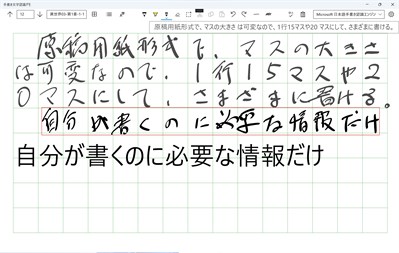 原稿用紙形式で、マスの大きさは可変なので、1行15マスや20 マスにして、さまざまに書ける。
原稿用紙形式で、マスの大きさ
は可変なので、1行15マスや2
0マスにして、さまざまに書ける。
自分が書くのに必要な情報だけ
自分が書くのに必要な情報だけ